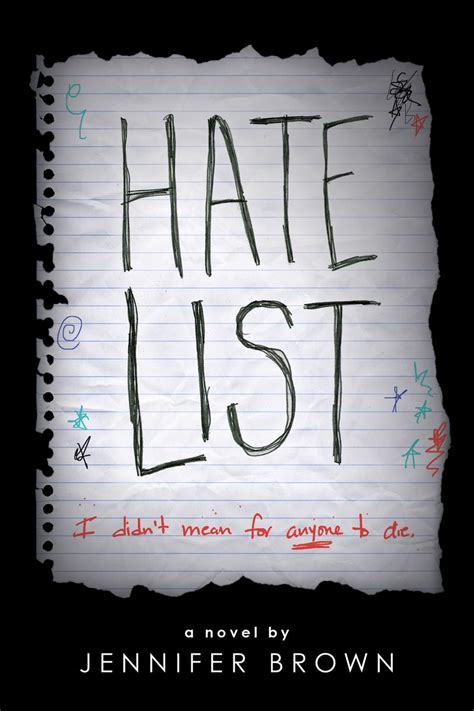 HATE
LIST
I didn't mean for anyone to die.
a novel by
JENNIFER BROWN